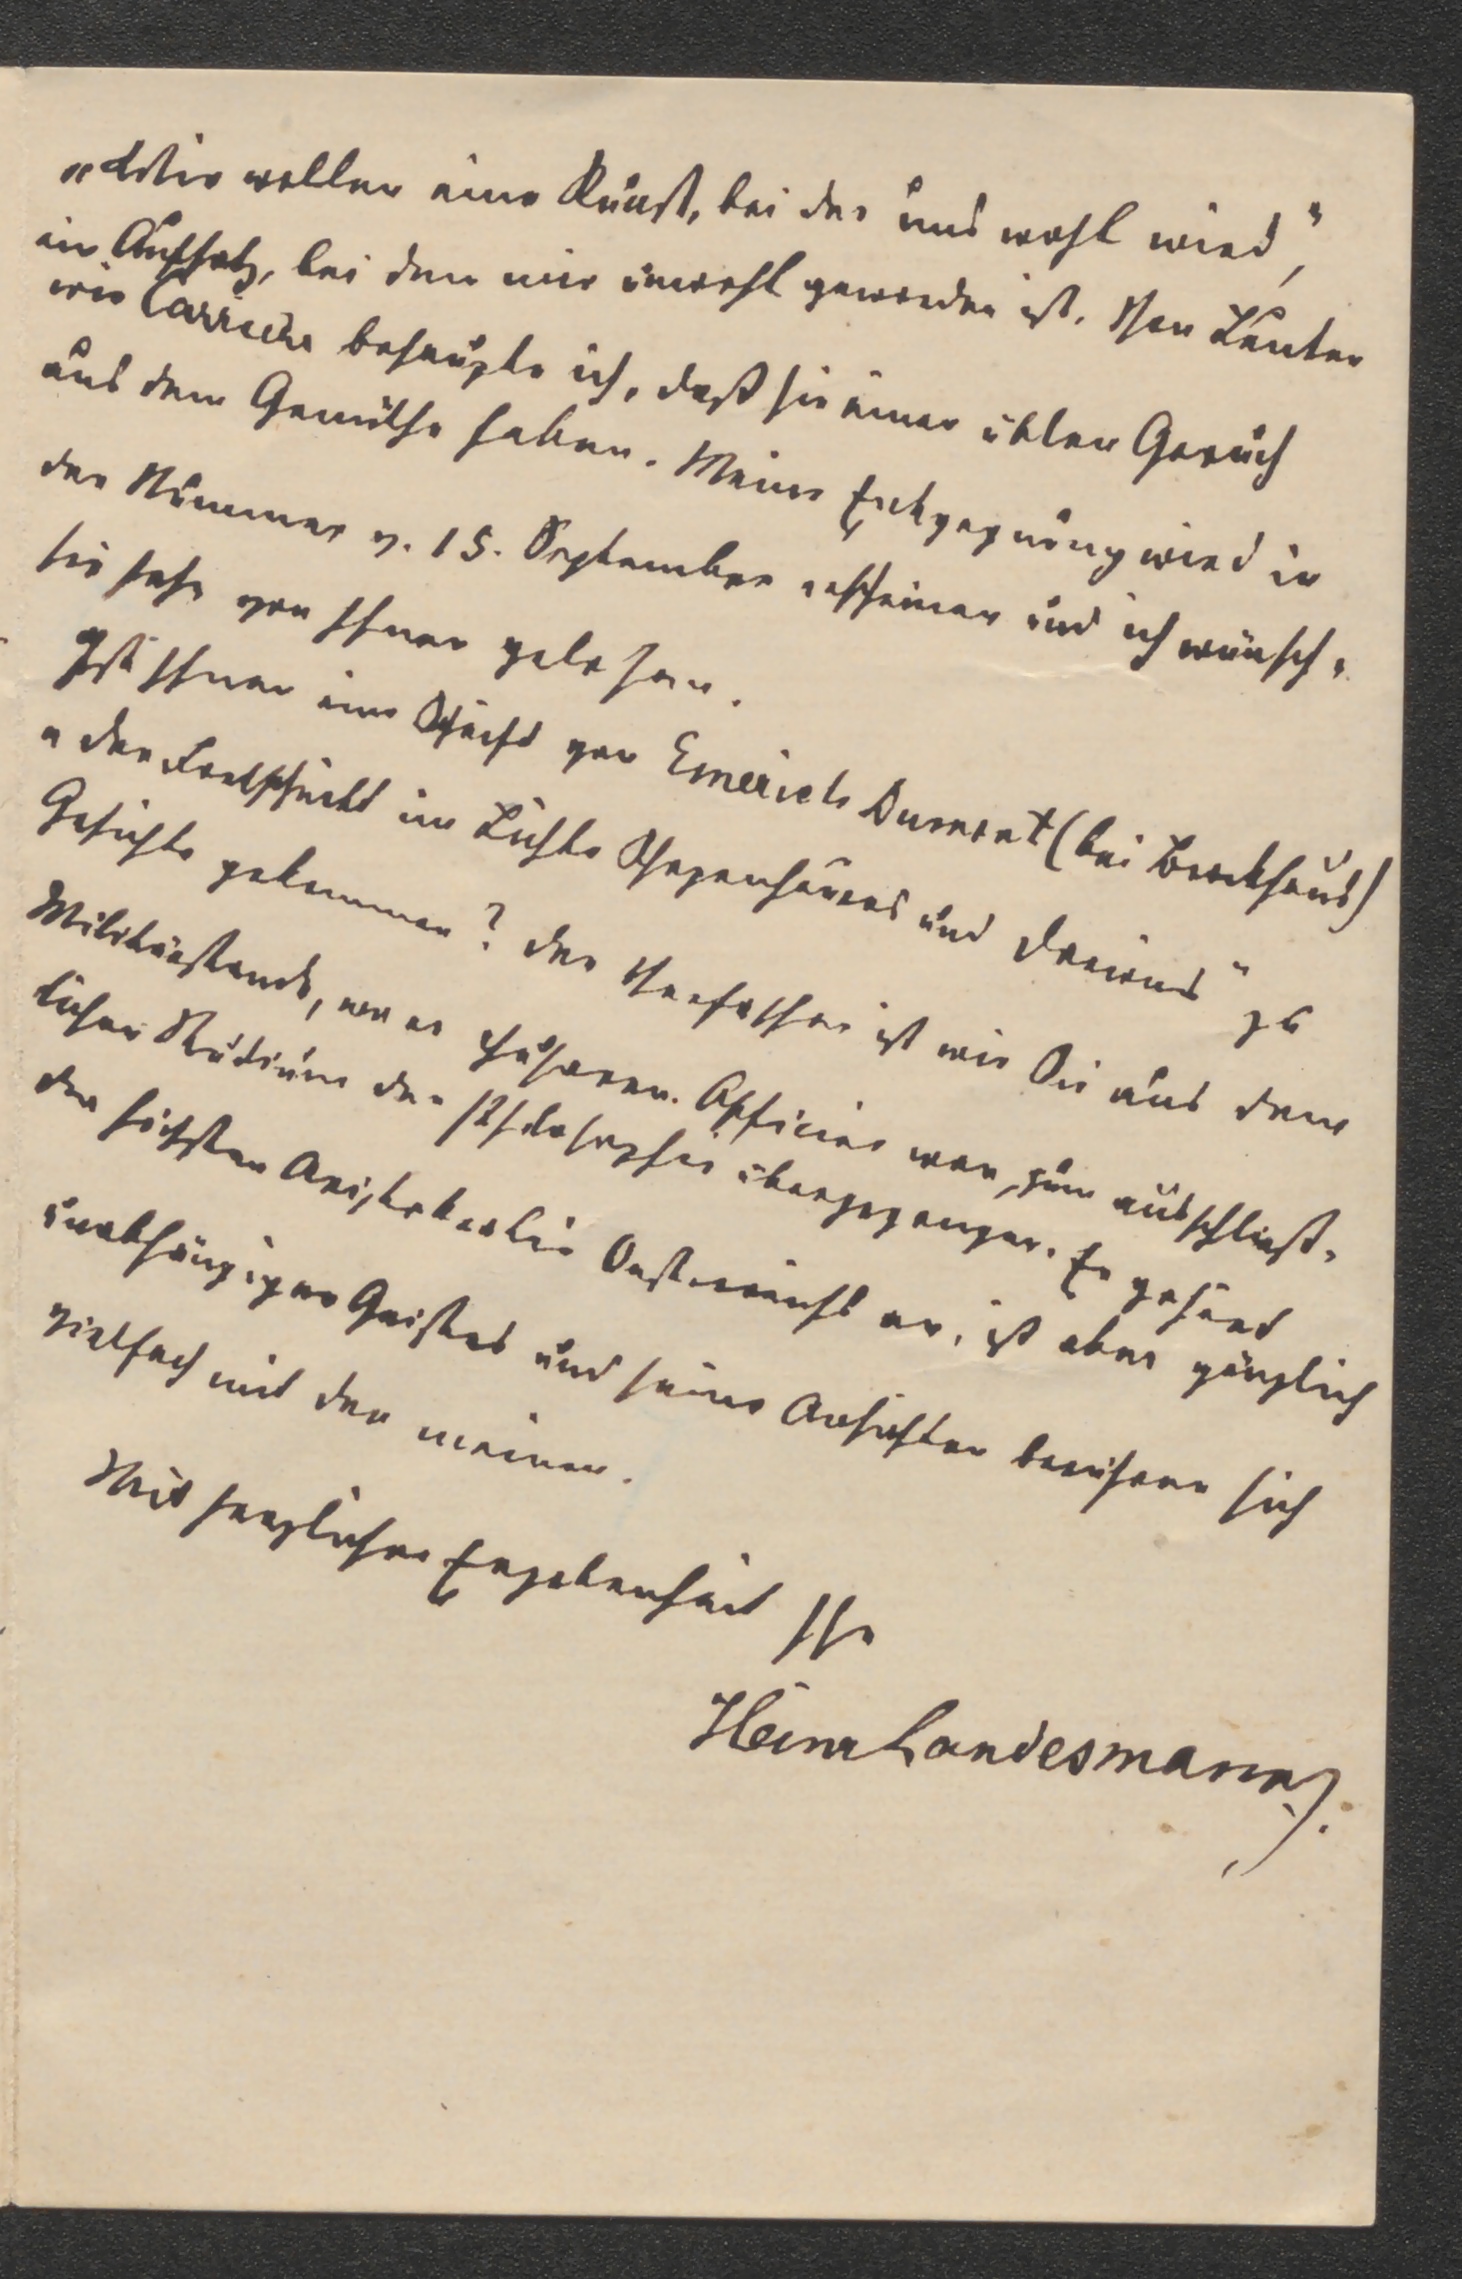 „Wir wollen eine Kunst, bei der uns wohl wird“,
ein Aufsatz, bei dem mir unwohl geworden ist. Von Leuten
wie Carriere behaupte ich, daß sie einen üblen Geruch
aus dem Gemüthe haben. Meine Entgegnung wird in
der Nummer v. 15. September erscheinen und ich wünsch-
te sehr von Ihnen gelesen.
Ist Ihnen eine Schrift von Emerich Dumont (bei Brockhaus)
„der Fortschritt im Lichte Schopenhauers und Darwins“ zu
Gesichte gekommen? Der Verfasser ist wie Sie aus dem
Militärstande, wo er höherer Officier war, zum ausschließ-
lichen Studium der Philosophie übergegangen. Er gehört
der höchsten Aristokratie Oesterreichs an, ist aber gänzlich
unabhängigen Geistes und seine Ansichten berühren sich
vielfach mit den meinen.
Mit herzlicher Ergebenheit Ihr
Heinr Landesmann.